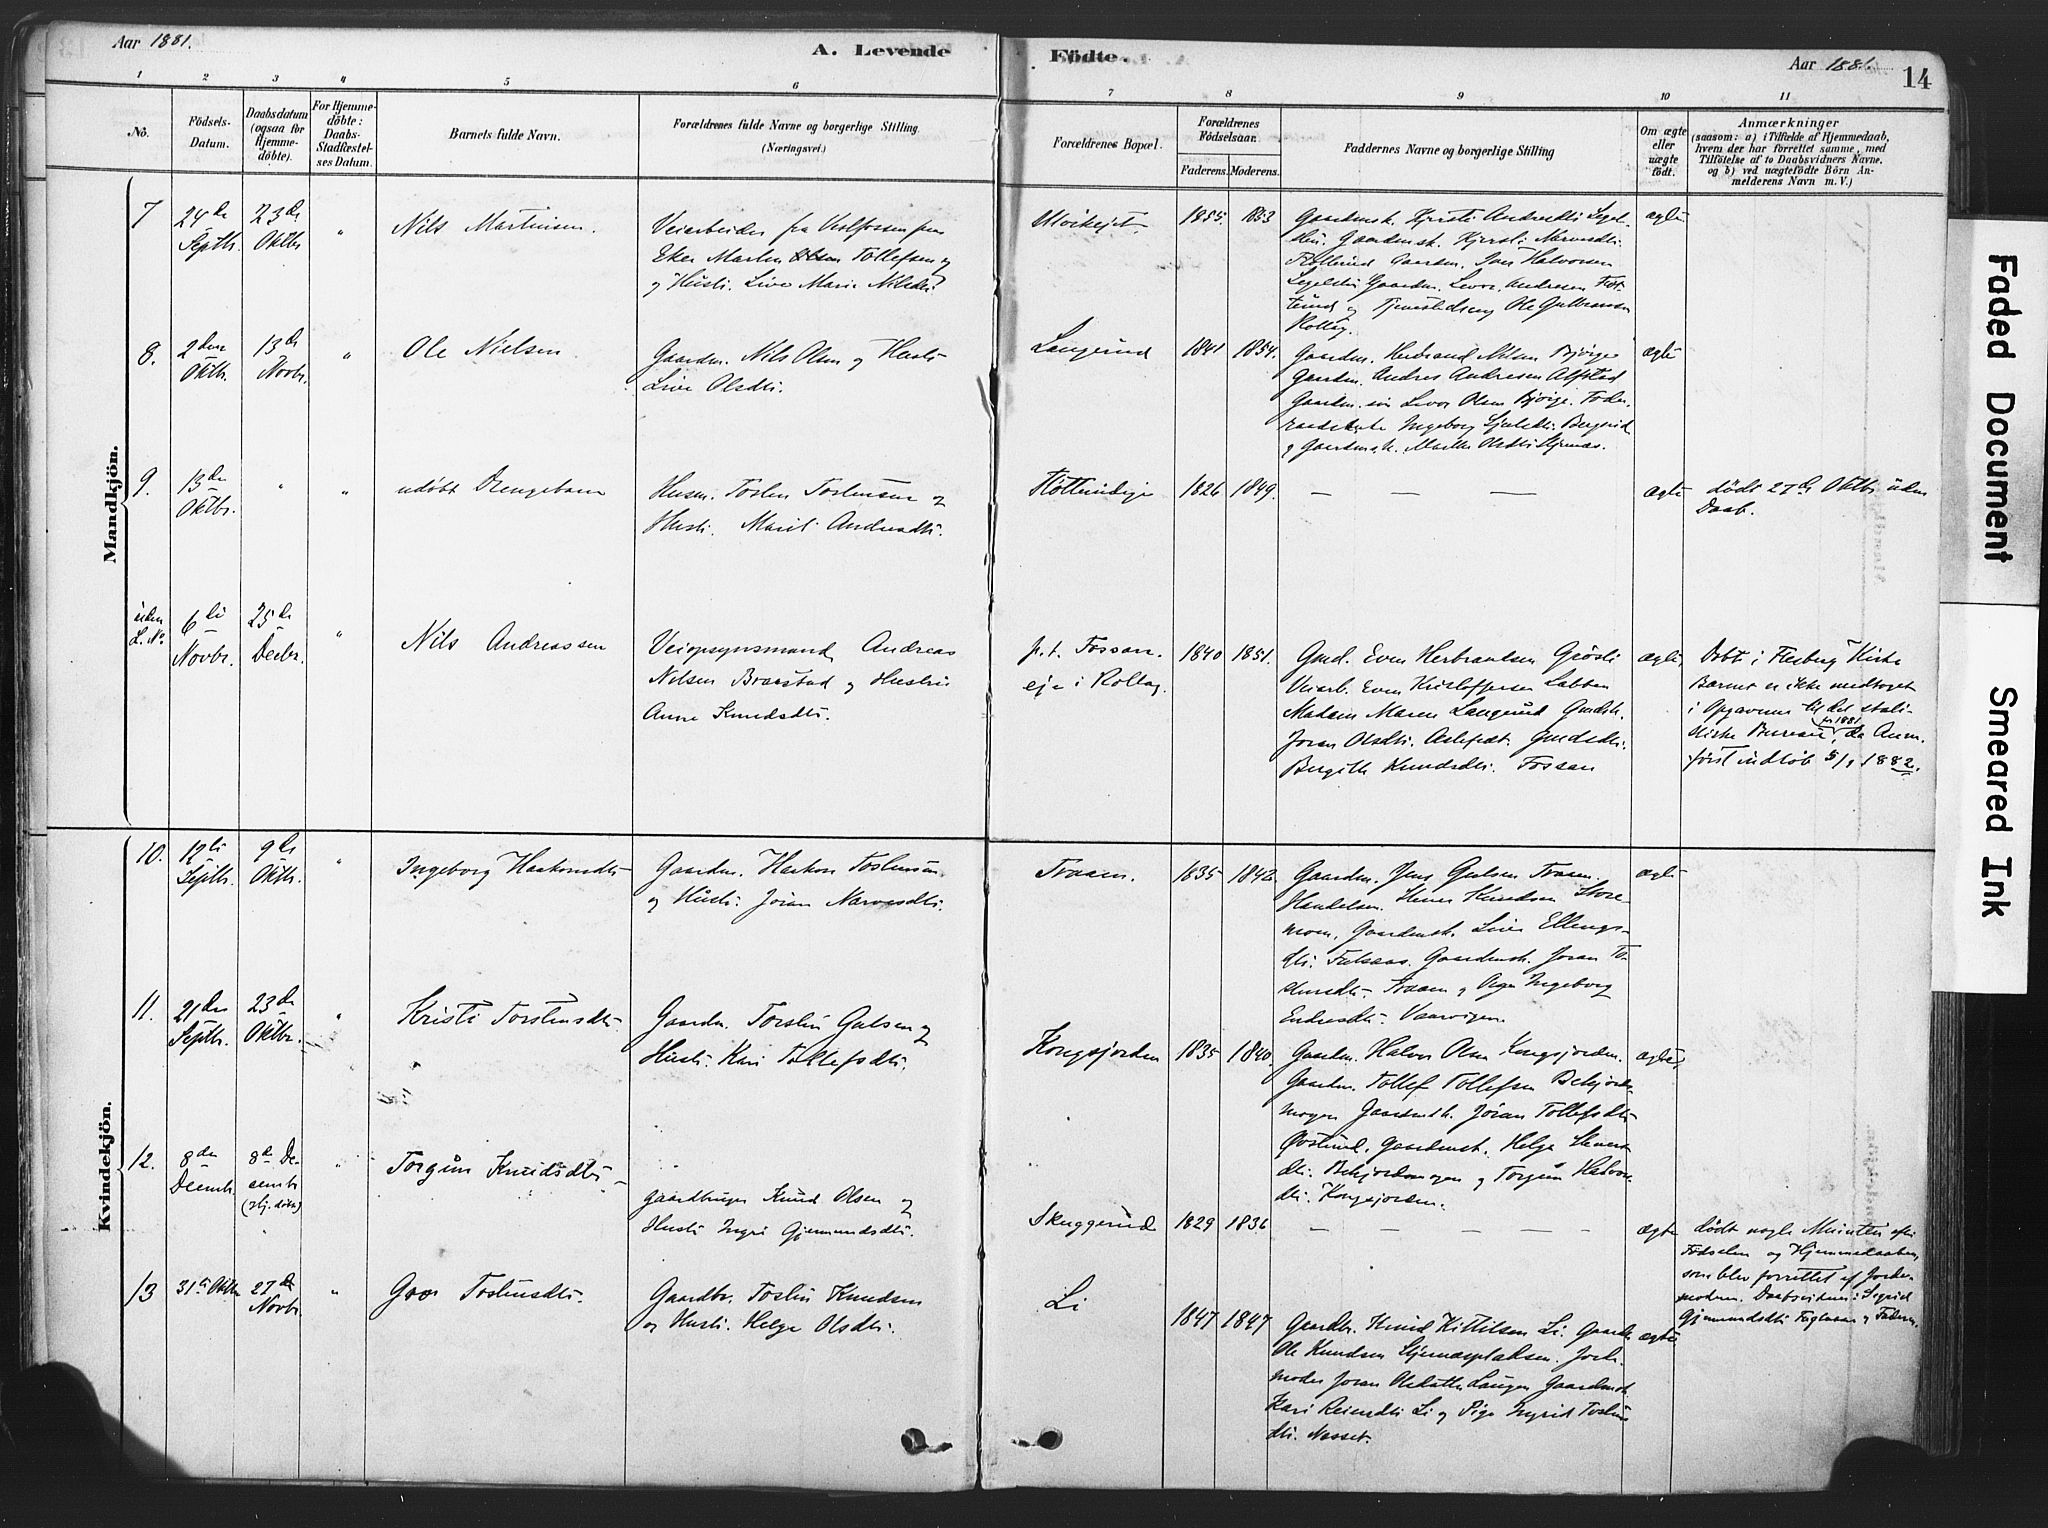 Aar 1881.
A. Levende
Födte.
Aar 1881.
14
1 2 3 4 5 6 7 8 9 10 11
No.
Födsels-
Datum.
Daabsdatum
(ogsaa for
Hjemme-
döbte).
For Hjemme-
döbte:
Daabs-
Stadfæstel-
ses Datum.
Barnets fulde Navn.
Forældrenes fulde Navne og borgerlige Stilling.
(Næringsvei.)
Forældrenes Bopæl.
Forældrenes
Födselsaar.
Faderens. Moderens.
Faddernes Navne og borgerlige Stilling
Om ægte
eller
uægte
födt.
Anmærkninger
(saasom: a) i Tilfælde af Hjemmedaab,
hvem der har forrettet samme, med
Tilföielse af to Daabsvidners Navne.
og b) ved uægtefödte Börn An-
melderens Navn m. V.)
Mandkjön.
7
24de
Septbr.
23de
Oktbr
"
Nils Martinsen.
Veiarbeider fra Vestfossen paa
Eker Martin Tollefsen og
og Hustr. Live Marie Nilsdtr.
1855. 1853
Gaardmsk. Kjersti Andresdtr
Gaardmsk. Kjersti Narvesdtr.
Gaardm. Halvorsen
Gaardm. Andresen
og Ole Gulbransen
Rollag.
ægte
8.
2den
Oktbr.
13de
Novbr.
"
Ole Nielsen
Gaardm. Nils Olsen og Hustr.
Live Olsdtr.
Langerud
1841 1854.
Gaardm. Herbrand Nilsen Bjørge
Gaardm. Andres Andresen Alfstad
Gaardm. Olsen Bjørge. Føde-
Ingeborg
og Gaardmsk.
ægte
9.
13de
Oktbr.
"
"
udøbt Drengebarn
Husm. Torsten Torstensen og
Hustr. Marit Andresdtr.
1826 1849.
— — —
ægte
dødt 27de Oktbr uden
Daab.
uden
L. No.
6te
Novbr.
25de
Decbr.
"
Nils Andreassen
Veiopsynsmand Andreas
Nilsen Braastad og Hustru
Anne Knudsdtr.
p.t. Fossan-
eje i Rollag.
1840 1851.
Gmd. Even Herbrantsen Grøsli
Veiarb. Even Kristoffersen Labben
Madam Maren Langerud Gmdsk.
Joran Olsdtr. Gmdsdtr.
Bergith Knudsdtr. Fossan
ægte
Døbt i Flesberg Kirke
Barnet er ikke medtaget
i Opgaverne til det stati-
stiske Bureau for 1881, da Anm.
først indløb 5/1 1882.
Kvindekjön.
10.
12te
Septbr.
9de
Oktbr.
"
Ingeborg Haakonsdtr
Gaardm. Haakon Torstensen
og Hustr. Jøran Narvesdtr.
Traaen.
1835 1842
Gaardm. Jens Gulsen Traaen.
Handelsm. Knudsen Store-
moen. Gaardmsk. Live Ellings-
dtr. Gaardmsk. Joran To-
Traaen og Pige Ingeborg
Endresdtr. Vaarvigen.
ægte
11.
21de
Septbr.
23de
Oktbr.
"
Kristi Torstensdtr.
Gaardm. Torsten Gulsen og
Hustr. Kari Tollefsdtr.
Kongsjorden
1835 1840.
Gaardm. Halvor Olsen Kongsjorden.
Gaardm. Tollef Tollefsen Bekjords-
mogen Gaardmsk. Jøran Tollefsdtr
Gaardmsk. Helge
dtr. Bekjordsmogen og Torgun Halvors-
dtr. Kongsjorden.
ægte
12.
8de
Decembr.
8de De-
cembr
(Hj. døbt)
"
Torgun Knudsdtr.
Gaardbruger Knud Olsen og
Hustr. Ingri Gjermundsdtr.
Skuggerud
1829 1836
— — — —
ægte
dødt nogle Minutter efter
Fødselen og Hjemmedaaben,
som blev forrettet af Jorde-
moderen. Daabsvidner: Sigrid
Gjermundsdtr og Faderen.
13
31te Oktbr
27de
Novbr.
"
Gro Torstensdtr.
Gaardbr. Torsten Knudsen
og Hustr. Helge Olsdtr.
Li
1847 1847
Gaardbr. Knud Kittilsen Li. Gaardbr
Ole Knudsen Jorde-
moder Joran Gaardmsk
Kari Reiersdtr Li og Pige Ingrid Torstens-
dtr. Nesset.
ægte
Faded Document
Smeared Ink